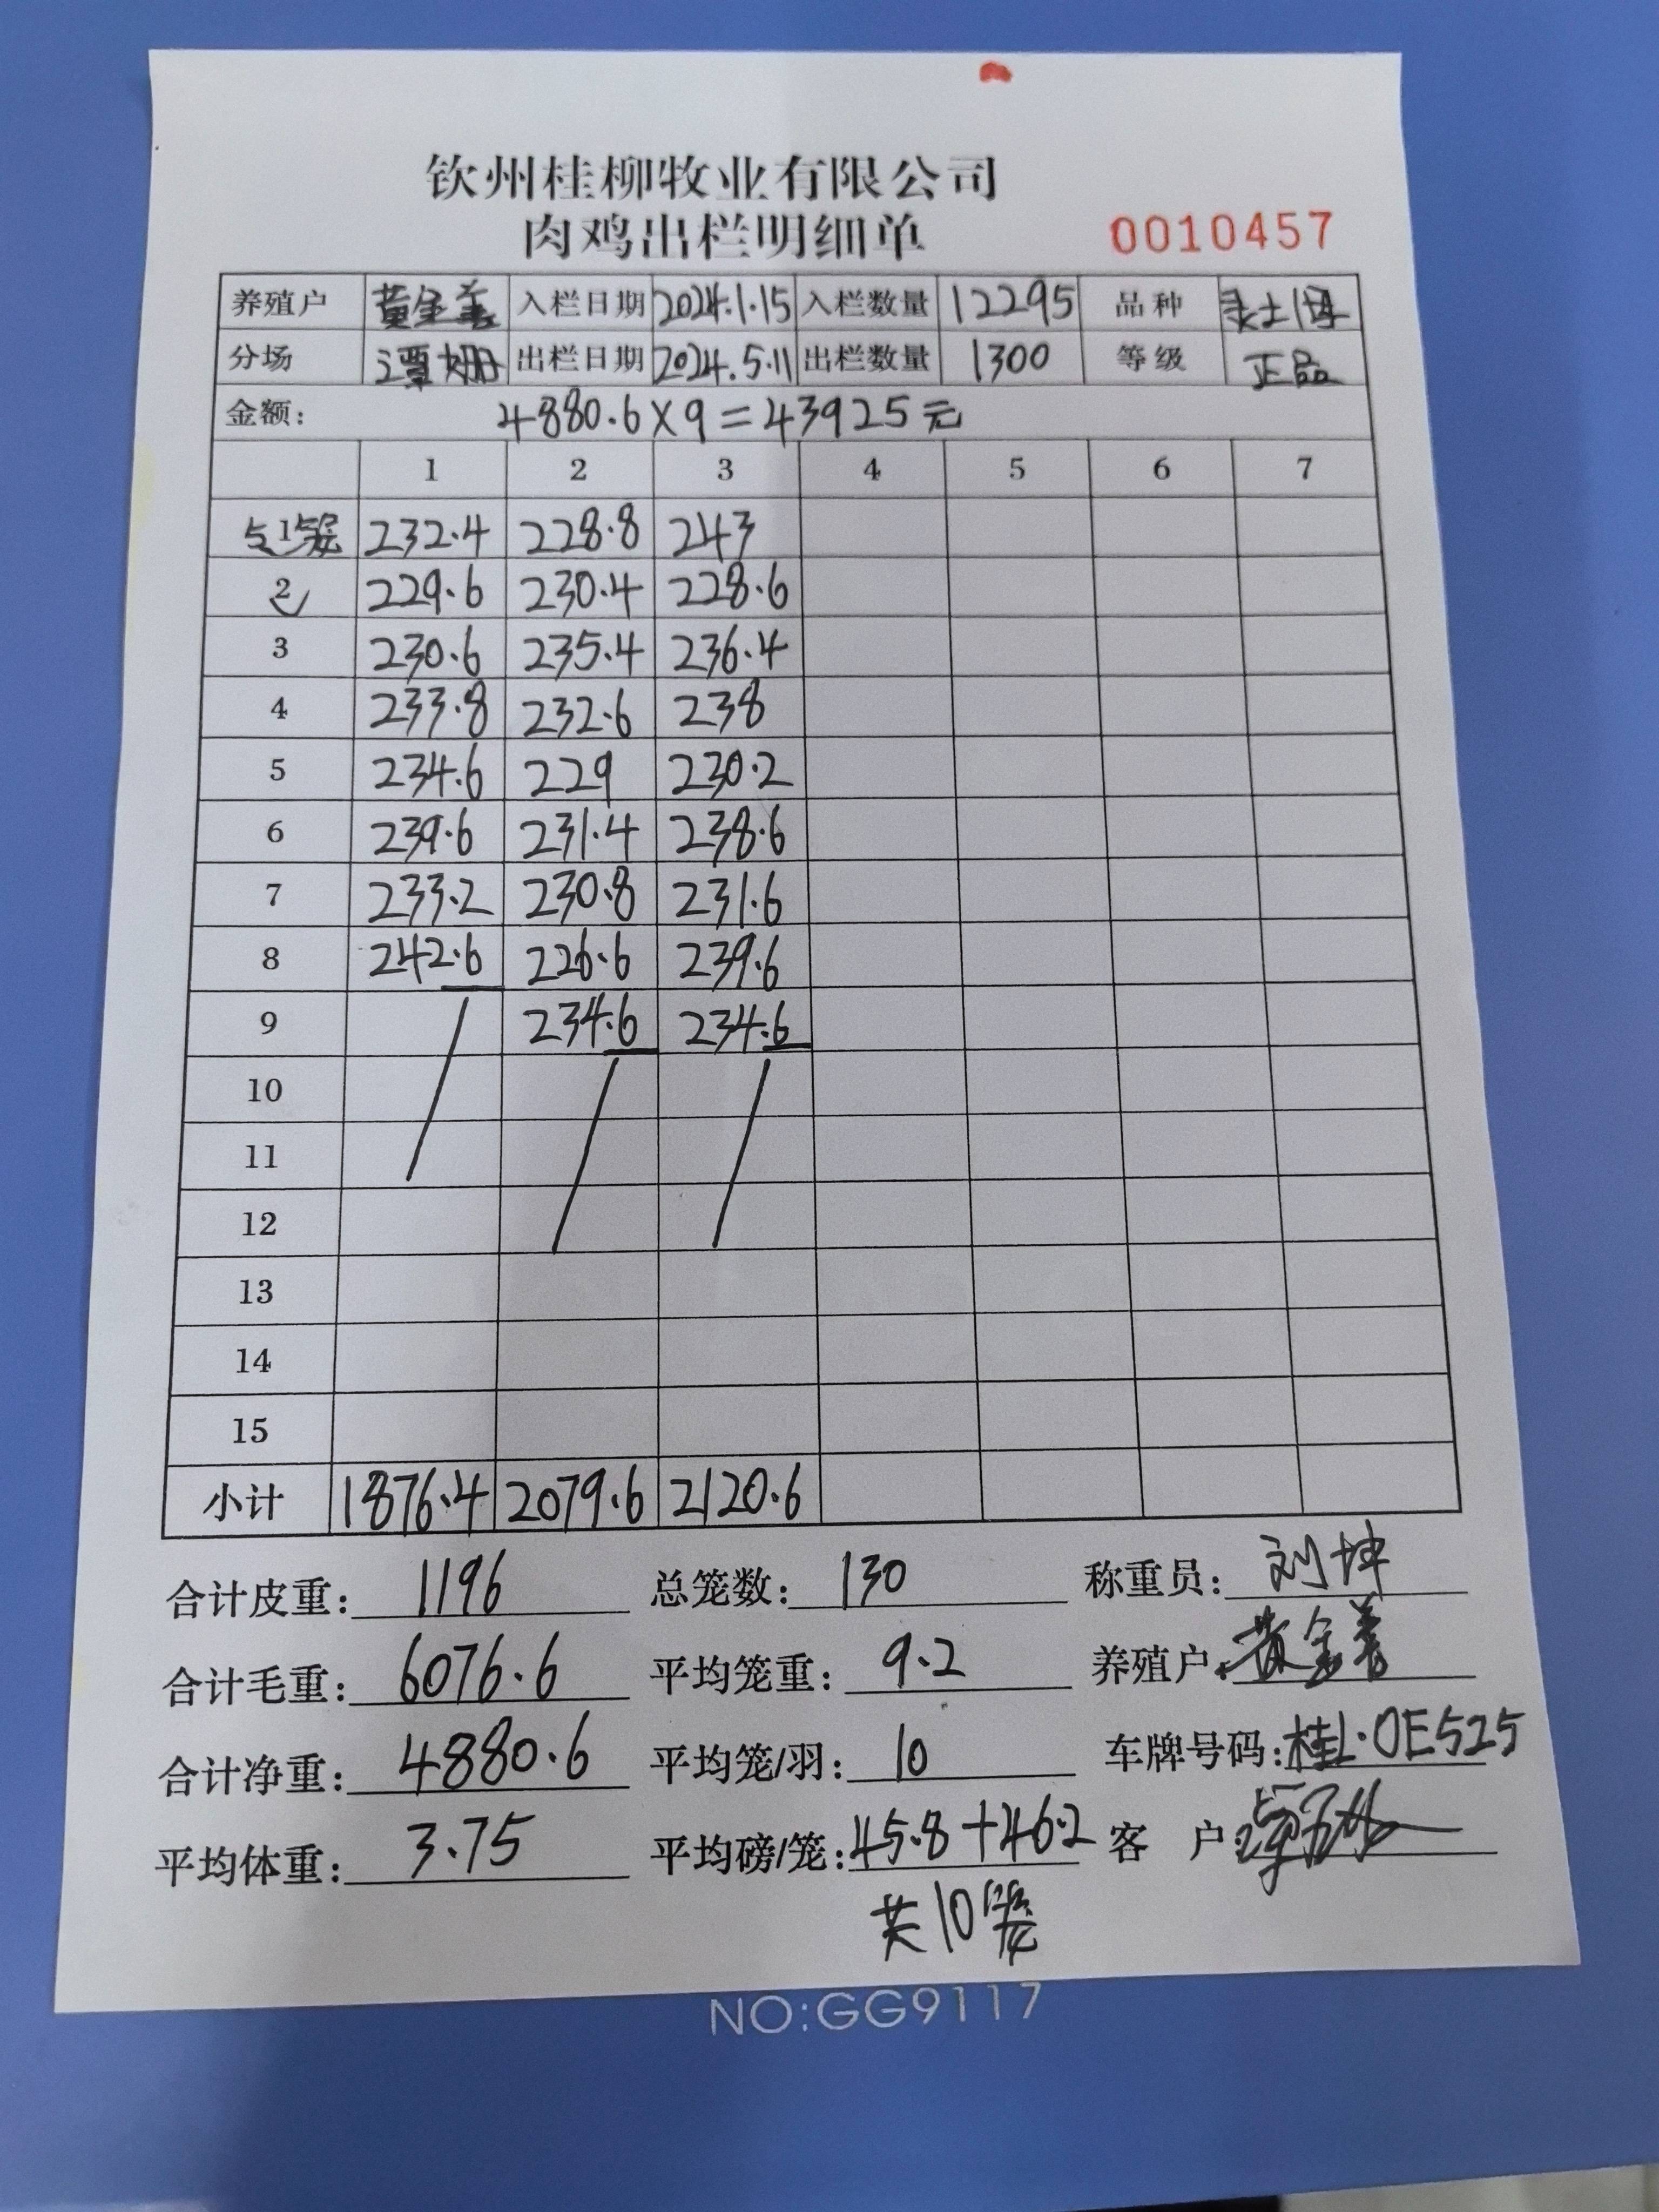 钦州桂柳牧业有限公司
肉鸡出栏明细单 0010457
养殖户 黄金善 入栏日期 2024.1.15 入栏数量 12295 品种
分场 潭姗 出栏日期 2024.5.11 出栏数量 1300 等级 正品
金额: 4880.6×9=43925元
1 2 3 4 5 6 7
5笼 1 232.4 228.8 243
2 229.6 230.4 228.6
3 230.6 235.4 236.4
4 233.8 232.6 238
5 234.6 229 230.2
6 239.6 231.4 238.6
7 233.2 230.8 231.6
8 242.6 226.6 239.6
9 234.6 234.6
10
11
12
13
14
15
小计 1876.4 2079.6 2120.6
合计皮重: 1196 总笼数: 130 称重员: 刘坤
合计毛重: 6076.6 平均笼重: 9.2 养殖户: 黄金善
合计净重: 4880.6 平均笼/羽: 10 车牌号码: 桂L·0E525
平均体重: 3.75 平均磅/笼: 45.8+46.2 客 户:
共10笼
NO:GG9117